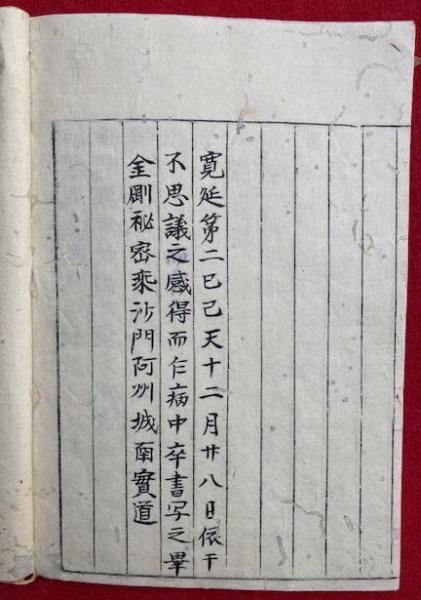 寛延第二己巳天十二月廿八日依于
不思議之感得而仁病中卒書写之畢
金剛祕密乘沙門阿州城南實道